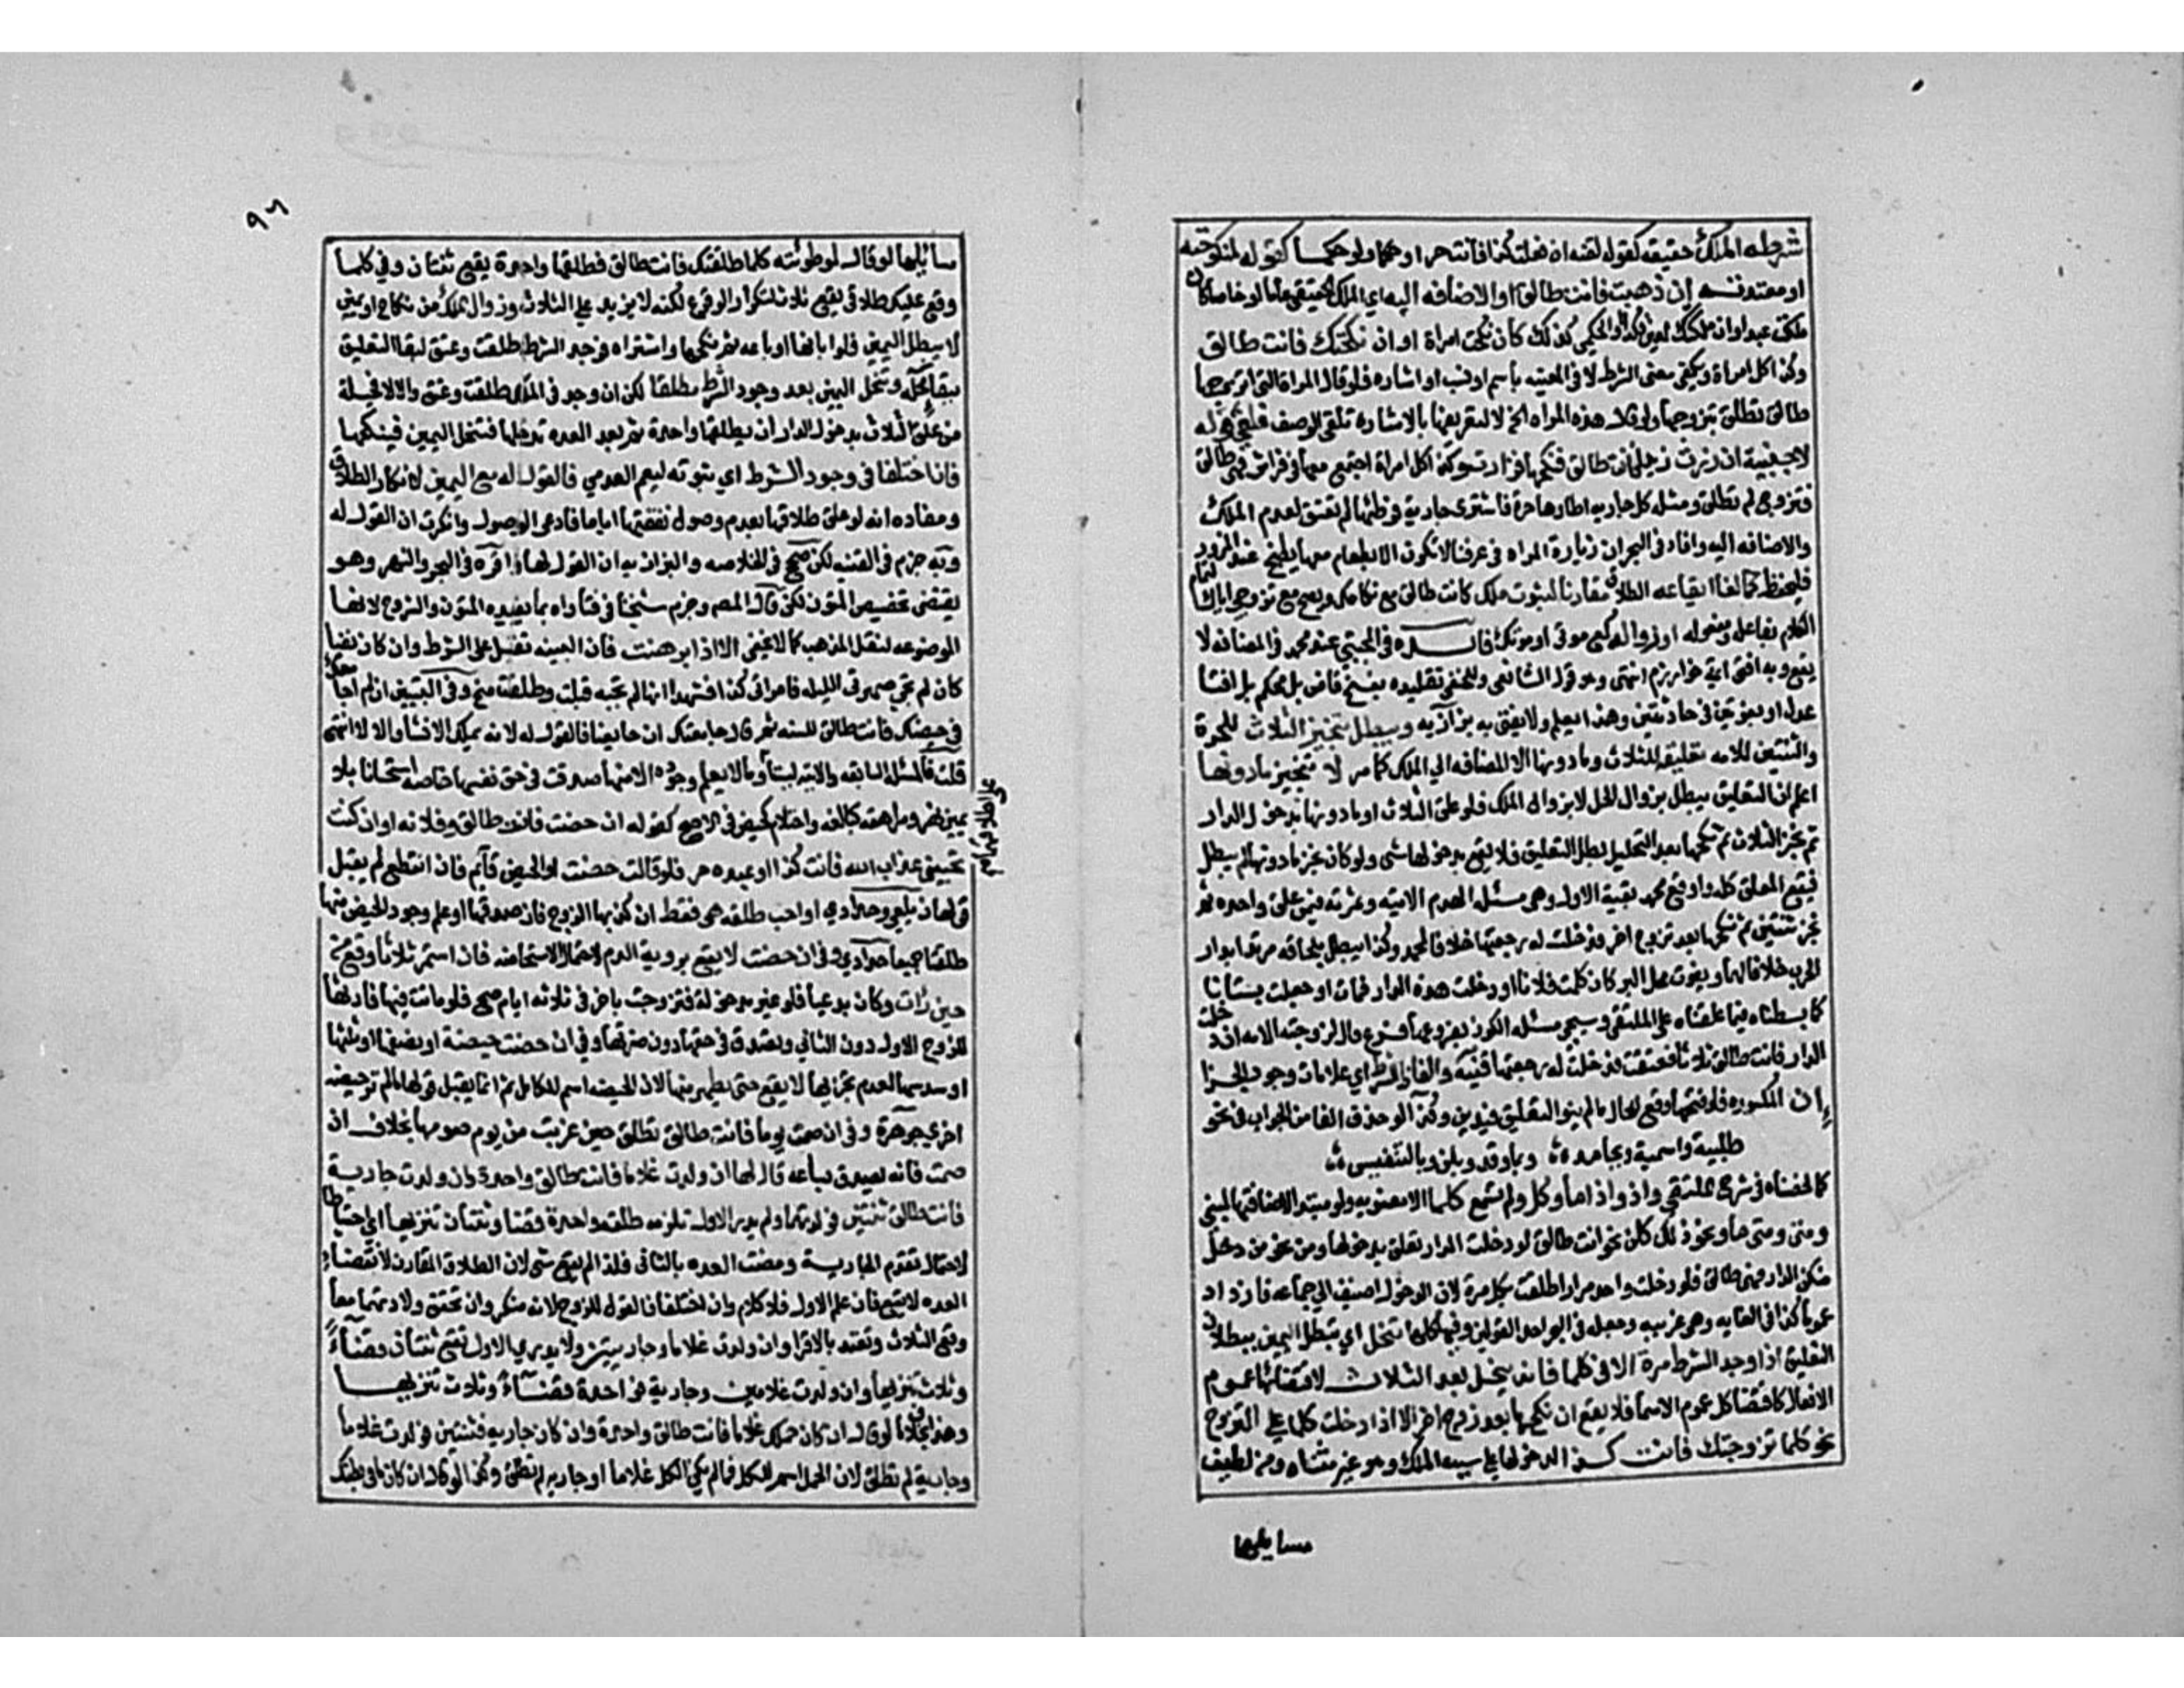 شرطه الملك حقيقة كقوله لقنه ان فعلت كذا فانت حر او حكما ولو حكما كقوله لمنكوحته
او معتدته ان ذهبت فانت طالق او الاضافه اليه اي الملك الحقيقي عاما او خاصا كان
ملكت عبدا او ان ملكتك لمعين فكذا او الحكمي كذلك كان نكحت امراة او ان نكحتك فانت طالق
وكذا كل امراة ويكفي معنى الشرط الا في المعينه باسم او نسب او اشاره فلو قال المراة التي اتزوجها
طالق تطلق بتزوجها ولو قال هذه المراه الخ لا لتعريفها بالاشاره فلغى الوصف فلغى قوله
لاجنبية ان زرت زيدا فانت طالق فنكحها فزارت وكذا كل امراة اجتمع معها في فراش فهي طالق
فتزوج لم تطلق ومثله كل جارية اطاوها حرة فاشترى جارية فوطئها لم تعتق لعدم الملك
والاضافه اليه وافاد في البحر ان زيارة المراه في عرفنا لا تكون الا بطعام معها يطبخ عند المزور
فليحفظ كما لغا ايقاعه الطلاق مقارنا لثبوت ملك كانت طالق مع نكاحك ويصح مع تزوجي اياك لتمام
الكلام بفاعله ومفعوله او زواله كمع موتي او موتك فائده في المجتبى عن محمد في المضافه لا
يقع وبه افتى ائمة خوارزم انتهى وهو قول الشافعي وللحنفي تقليده بفسخ قاض بل محكم بل افتا
عدل او بفتوتين في حادثتين وهذا يعلم ولا يفتى به بزازيه ويبطل تنجيز الثلاث للحرة
والثنتين للامه تعليقه للثلاث وما دونها الا المضافه الي الملك كما مر لا تنجيز ما دونها
اعلم ان التعليق يبطل بزوال الحل لا بزوال الملك فلو علق الثلاث او ما دونها بدخول الدار
ثم نجز الثلاث ثم نكحها بعد التحليل بطل التعليق فلا يقع بدخولها شي ولو كان نجز ما دونها لم يبطل
فيقع المعلق كله واوقع محمد بقية الاول وهي مسئلة الهدم الاتيه وثمرته فيمن علق واحده ثم
نجز ثنتين ثم نكحها بعد زوج اخر فدخلت له رجعتها خلافا لمحمد وكذا يبطل بلحاقه مرتدا بدار
الحرب خلافا لهما وبفوت محل البر كان كلمت فلانا او دخلت هذه الدار فمات او جعلت بستانا
كما بسطناه فيما علقناه على الملتقى وسيجي مسئلة الكوز بفروعها فرع قال لزوجته الامه ان دخلت
الدار فانت طالق ثلاثا فعتقت فدخلت له رجعتها قنيه والفاظ الشرط اي علامات وجود الجزا
ان المكسوره فلو فتحها وقع للحال ما لم ينو التعليق فيدين وكذا لو حذف الفا من الجواب في نحو
طلبية واسمية وبجامد وبما وقد وبلن وبالتنفيس
كما لخصناه في شرح الملتقى واذا واذا ما وكل ولم تسمع كلما الا منصوبه ولو مبتدا لاضافتها لمبني
ومتى ومتى ما ونحو ذلك كلو نحو انت طالق لو دخلت الدار تعلق بدخولها ومن نحو من دخل
منكن الدار فهي طالق فلو دخلت واحده مرارا طلقت بكل مرة لان الدخول اضيف الي جماعه فازداد
عموما كذا في الغايه وهي غريبه وجعله في البحر احد القولين وفيها كلها تنحل اي تبطل اليمين ببطلان
التعليق اذا وجد الشرط مرة الا في كلما فانه ينحل بعد الثلاث لاقتضائها عموم
الافعال كاقتضا كل عموم الاسما فلا يقع ان نكحها بعد زوج اخر الا اذا دخلت كلما على التزوج
نحو كلما تزوجتك فانت كذا لدخولها على سبب الملك وهو غير متناه ومن لطيف
مسايلها
٩٦
مسائلها لو قال لموطوئته كلما طلقتك فانت طالق فطلقها واحدة يقع ثنتان وفي كلما
وقع عليك طلاقي يقع ثلاث لتكرار الوقوع لكنه لا يزيد علي الثلاث وزوال الملك من نكاح او يمين
لا يبطل اليمين فلو ابانها او باعه ثم نكحها او اشتراه فوجد الشرط طلقت وعتق لبقا التعليق
ببقا محله وتنحل اليمين بعد وجود الشرط مطلقا لكن ان وجد في الملك طلقت وعتق والا لا فحيلة
من علق الثلاث بدخول الدار ان يطلقها واحدة ثم بعد العده تدخلها فتنحل اليمين فينكحها
فان اختلفا في وجود الشرط اي ثبوته ليعم العدمي فالقول له مع اليمين لانكاره الطلاق
ومفاده انه لو علق طلاقها بعدم وصول نفقتها اياما فادعى الوصول وانكرت ان القول له
وبه جزم في القنيه لكن صحح في الخلاصه والبزازيه ان القول لها واقره في البحر والنهر وهو
يقتضي تخصيص المتون لكن قال المص وجزم شيخنا في فتاواه بما يفيده المتون والشروح لانها
الموضوعه لنقل المذهب كما لا يخفى الا اذا برهنت فان البينه تقبل على الشرط وان كان نفيا
كان لم تجي صهرتي الليله فامراتي كذا فشهدا انها لم تجيه قبلت وطلقت منح وفي التبيين ان لم اجامعك
في حيضك فانت طالق للسنه ثم قال جامعتك ان حايضا فالقول له لانه يملك الانشا والا لا انتهى
قلت فالمسئلة السابقه والاتيه ليستا وما لا يعلم وجوده الا منها صدقت في حق نفسها خاصه استحسانا بلا
يمين نهر ومراهقه كبالغه واحتلام كحيض في الاصح كقوله ان حضت فانت طالق وفلانه او ان كنت
تحبيني عذاب الله فانت كذا او عبده حر فلو قالت حضت والحيض قائم فان انقطع لم يقبل
قولها زيلعي وحدادي او احب طلقت هي فقط ان كذبها الزوج فان صدقها او علم وجود الحيض منها
طلقتا جميعا حدادي وفي ان حضت لا يقع بروية الدم لاحتمال الاستحاضه فان استمر ثلاثا وقع من
حين رات وكان بدعيا فلو غير مدخوله فتزوجت باخر في ثلاثه ايام صح فلو ماتت فيها فارثها
للزوج الاول دون الثاني وتصدق في حقها دون ضرتها وفي ان حضت حيضة او نصفها او ثلثها
او سدسها لعدم تجزيها لا يقع حتى تطهر منها لان الحيضه اسم للكامل ثم انما يقبل قولها ما لم تر حيضه
اخرى جوهرة وفي ان صمت يوما فانت طالق تطلق حين غربت من يوم صومها بخلاف ان
صمت فانه يصدق بساعه قال لها ان ولدت غلاما فانت طالق واحدة وان ولدت جارية
فانت طالق ثنتين فولدتهما ولم يدر الاول تلزمه طلقه واحدة قضا وثنتان تنزيها اي احتياطا
لاحتمال تقدم الجارية ومضت العده بالثاني فلذا لم يقع شي لان الطلاق المقارن لانقضاء
العده لا يقع فان علم الاول فلا كلام وان اختلفا فالقول للزوج لانه منكر وان تحقق ولادتهما معا
وقع الثلاث وتعتد بالاقرا وان ولدت غلاما وجاريتين ولا يدرى الاول تقع ثنتان قضاء
وثلاث تنزيها وان ولدت غلامين وجارية فواحدة قضاء وثلاث تنزيها
وهذا بخلاف ما لو قال ان كان حملك غلاما فانت طالق واحدة وان كان جارية فثنتين فولدت غلاما
وجارية لم تطلق لان الحمل اسم للكل فما لم يكن الكل غلاما او جارية لم تطلق وكذا لو قال ان كان ما في بطنك